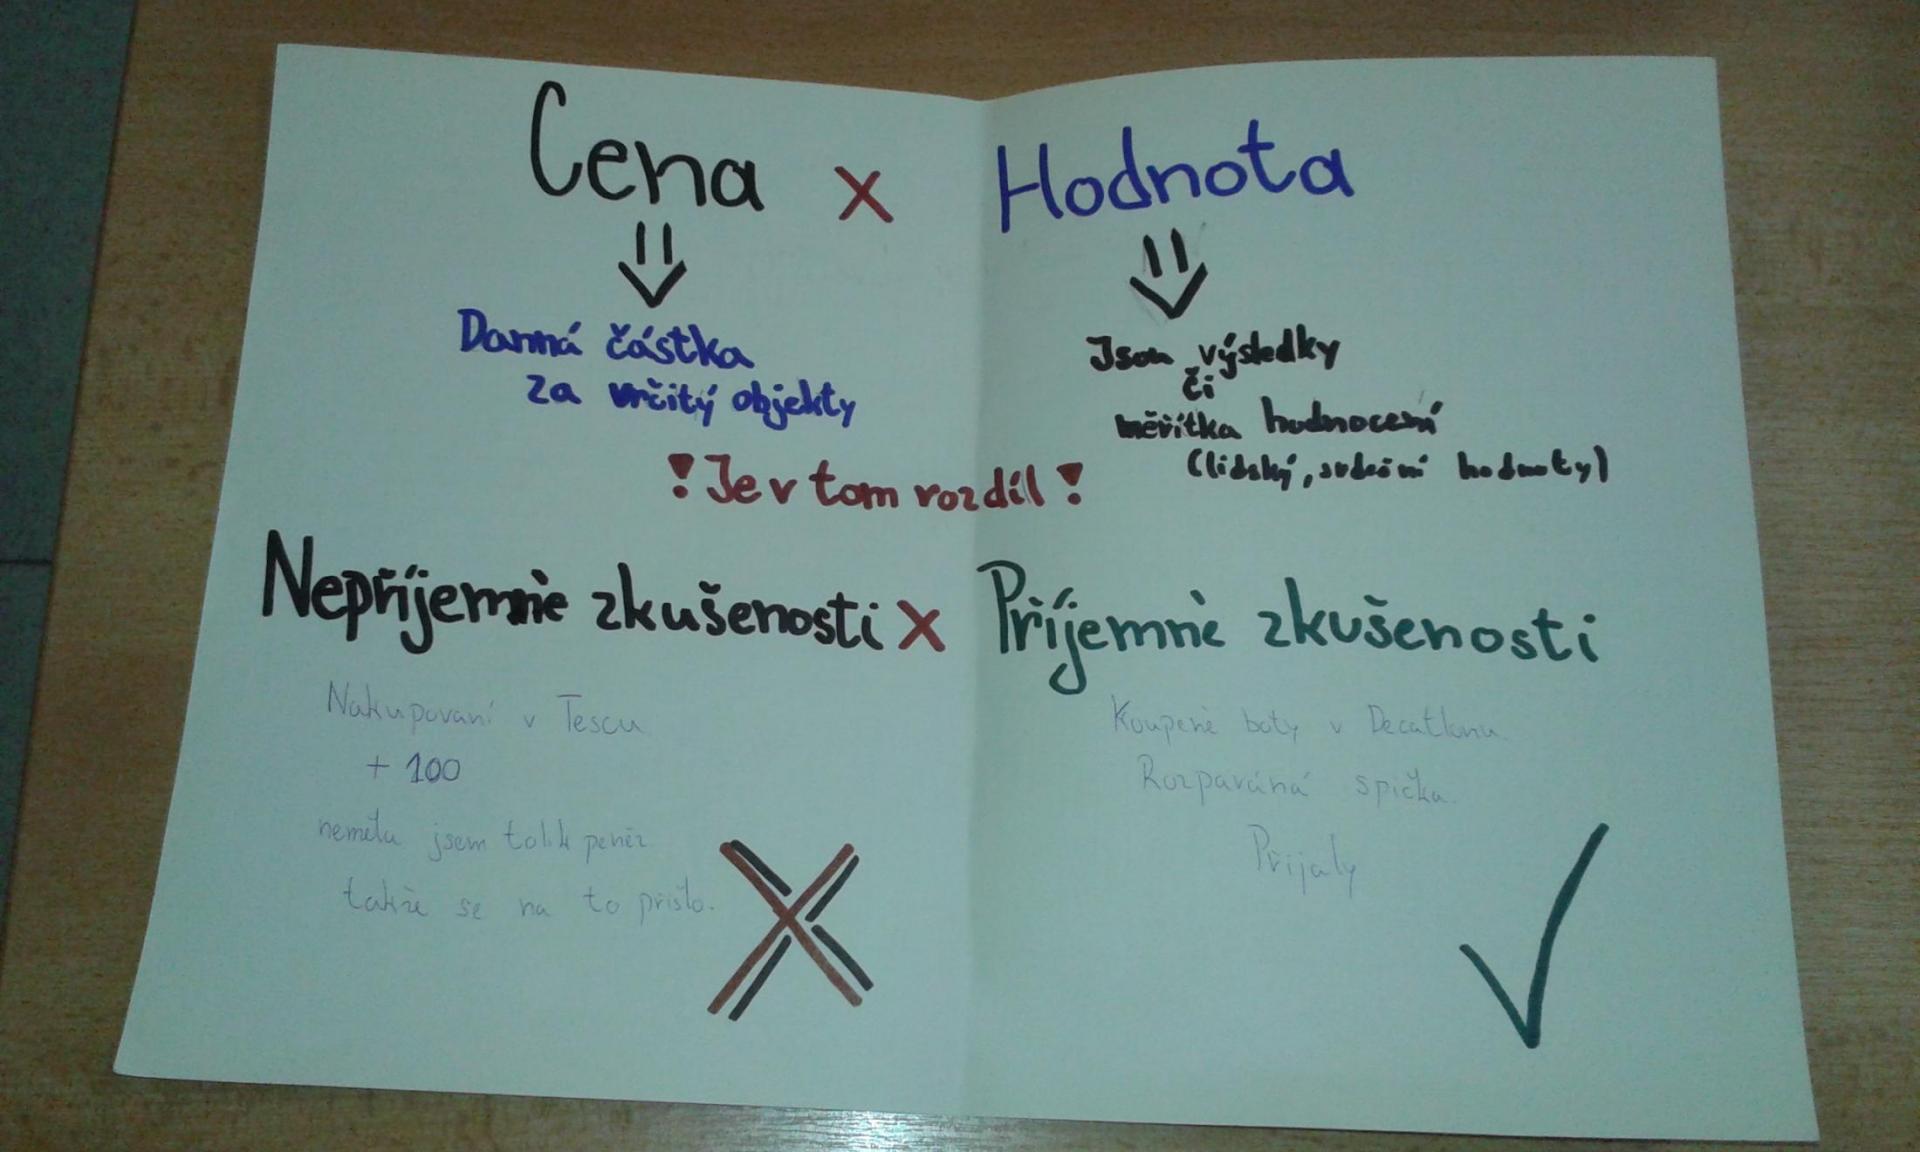 Cena x Hodnota
Danná částka
za určitý objekty
Jsou výsledky
či
měřítka hodnocení
(lidský, srdeční hodnoty)
! Je v tom rozdíl !
Nepříjemně zkušenosti x Příjemně zkušenosti
Nakupovaní v Tescu
+ 100
neměla jsem tolik peněz
takže se na to přišlo.
Koupené boty v Decatlonu.
Rozpáraná spička.
Přijaly